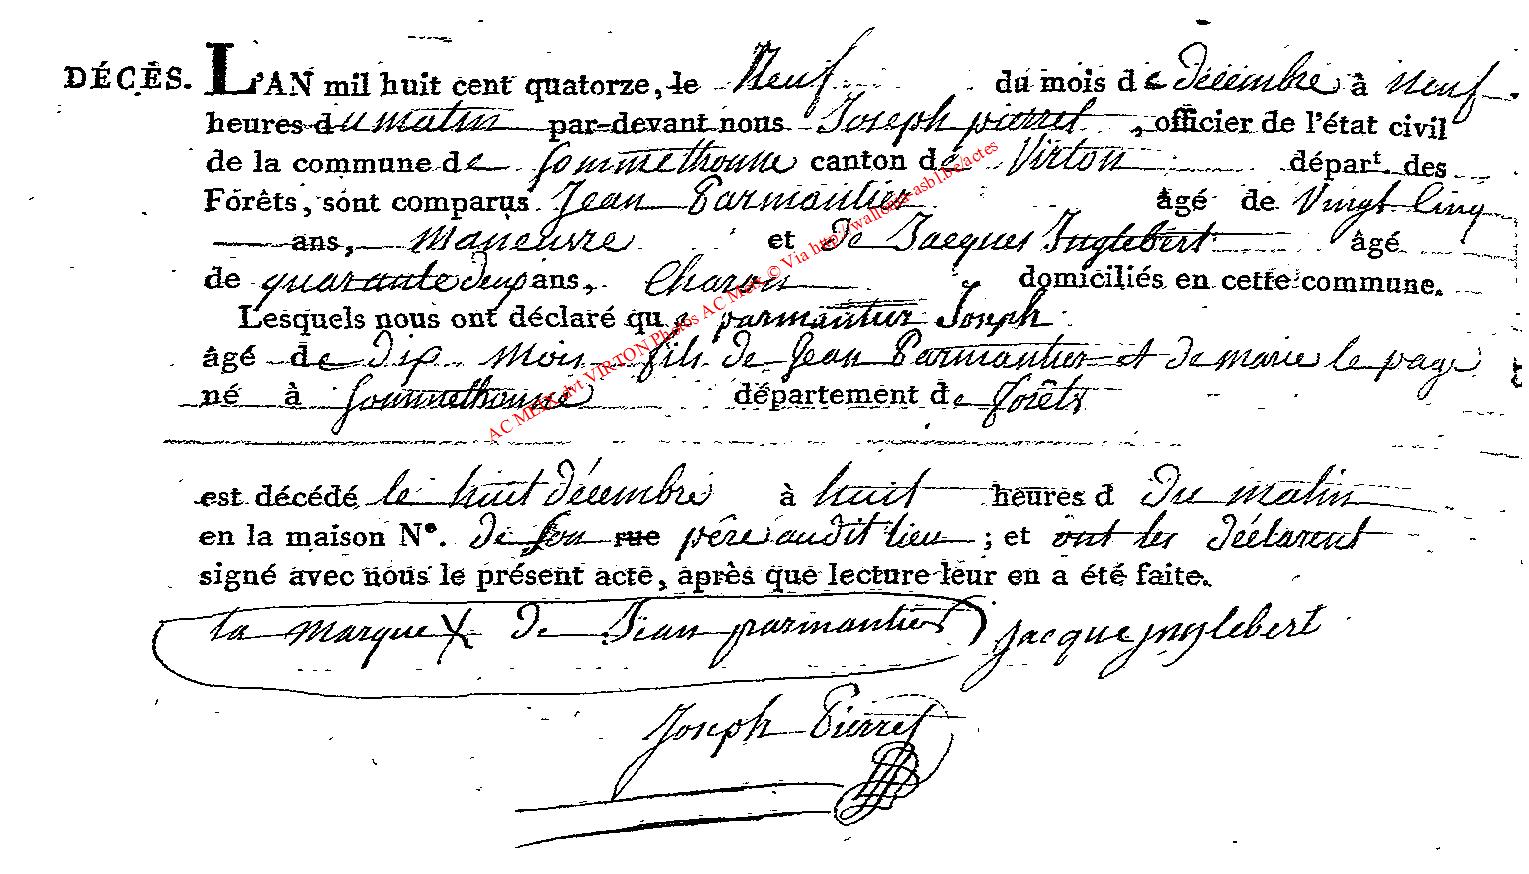 DÉCÈS. L'AN mil huit cent quatorze, le Neuf du mois de décembre à Neuf
heures du matin par-devant nous Joseph pierret, officier de l'état civil
de la commune de Sommethonne canton de Virton départ. des
Forêts, sont comparus Jean Parmantier âgé de Vingt Cinq
ans, Maneuvre et de Jacques Inglebert âgé
de quarante deux ans, Charon domiciliés en cette commune.
Lesquels nous ont déclaré que parmantier Joseph
âgé de dix mois fils de Jean Parmantier et de marie le page
né à Sommethonne département de forêts
est décédé le huit décembre à huit heures d Du matin
en la maison N°. de son rue père audit lieu ; et ont les déclarent
signé avec nous le présent acte, après que lecture leur en a été faite.
la marque X de Jean parmantier Jacque jnglebert
Joseph Pierret
AC MEIX dvt VIRTON Photos AC Meix © Via http://wallonia-asbl.be/actes